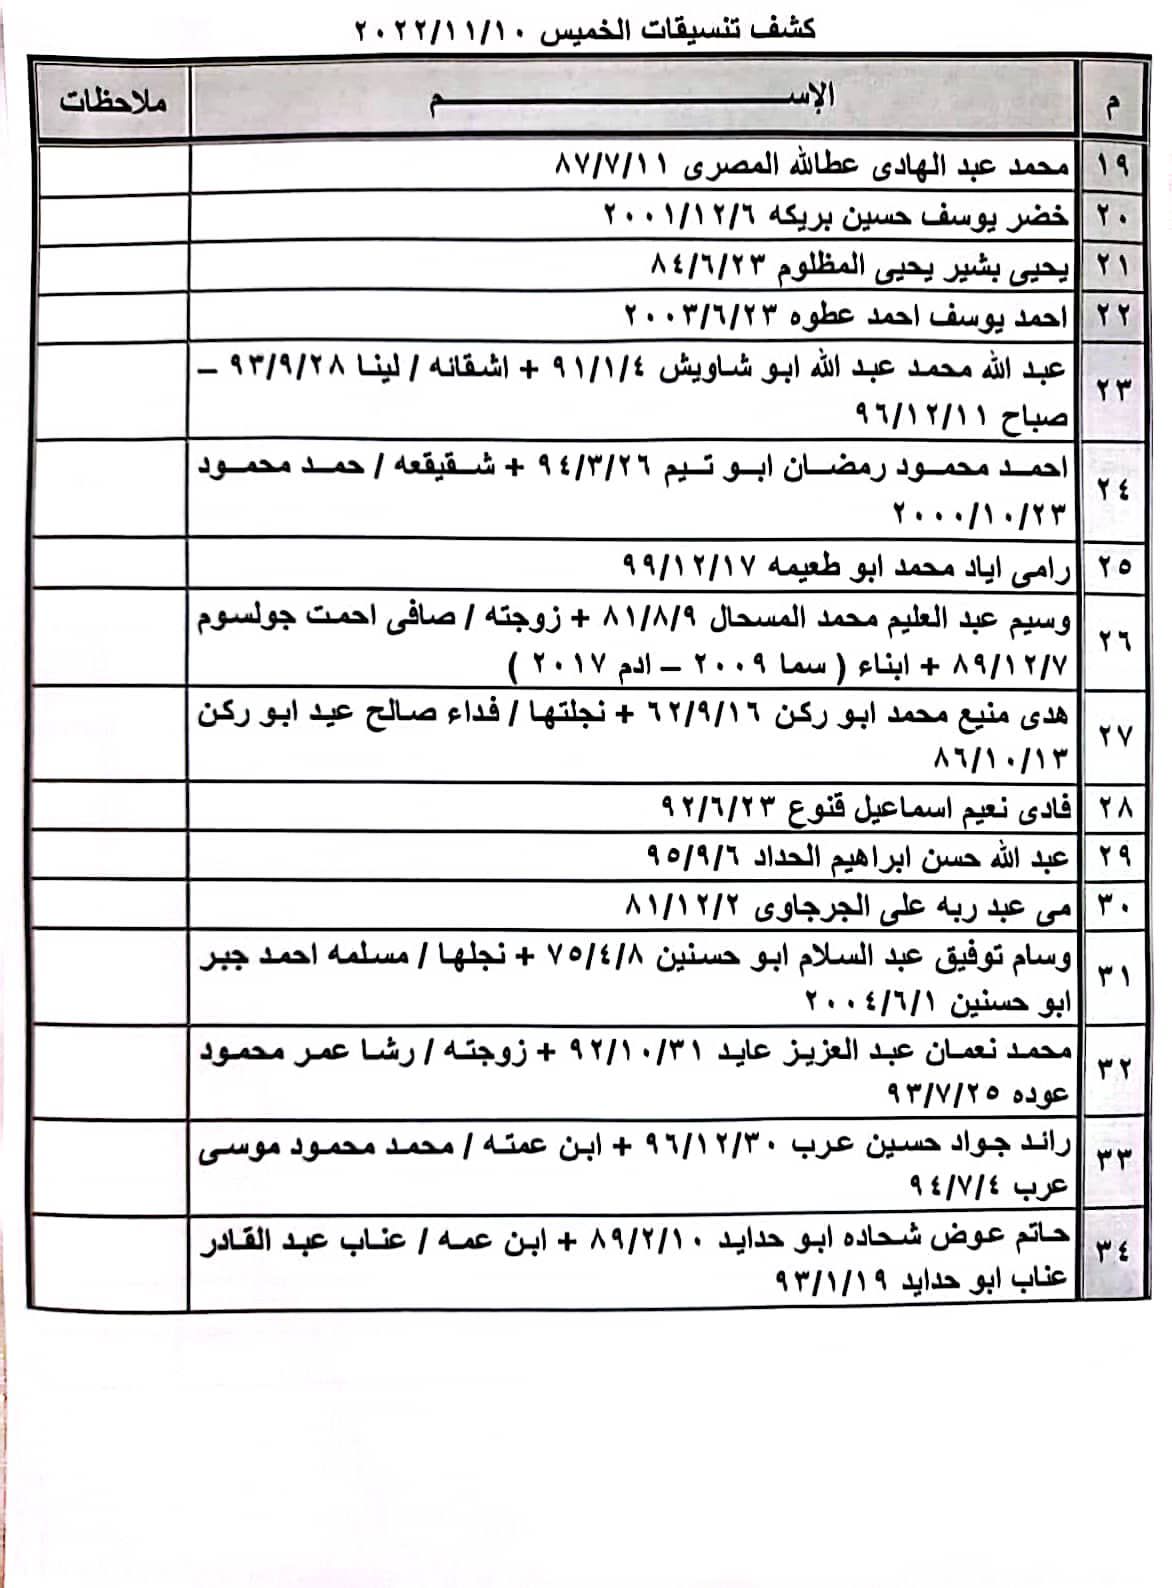 كشف تنسيقات الخميس ٢٠٢٢/١١/١٠
م الإســـم ملاحظات
١٩ محمد عبد الهادى عطالله المصرى ٨٧/٧/١١
٢٠ خضر يوسف حسين بريكه ٢٠٠١/١٢/٦
٢١ يحيى بشير يحيى المظلوم ٨٤/٦/٢٣
٢٢ احمد يوسف احمد عطوه ٢٠٠٣/٦/٢٣
٢٣ عبد الله محمد عبد الله ابو شاويش ٩١/١/٤ + اشقانه / لينا ٩٣/٩/٢٨ –
صباح ٩٦/١٢/١١
٢٤ احمد محمود رمضان ابو تيم ٩٤/٣/٢٦ + شقيقعه / حمد محمود
٢٠٠٠/١٠/٢٣
٢٥ رامى اياد محمد ابو طعيمه ٩٩/١٢/١٧
٢٦ وسيم عبد العليم محمد المسحال ٨١/٨/٩ + زوجته / صافى احمت جولسوم
٨٩/١٢/٧ + ابناء ( سما ٢٠٠٩ – ادم ٢٠١٧ )
٢٧ هدى منيع محمد ابو ركن ٦٢/٩/١٦ + نجلتها / فداء صالح عيد ابو ركن
٨٦/١٠/١٣
٢٨ فادى نعيم اسماعيل قنوع ٩٢/٦/٢٣
٢٩ عبد الله حسن ابراهيم الحداد ٩٥/٩/٦
٣٠ مى عبد ربه على الجرجاوى ٨١/١٢/٢
٣١ وسام توفيق عبد السلام ابو حسنين ٧٥/٤/٨ + نجلها / مسلمه احمد جبر
ابو حسنين ٢٠٠٤/٦/١
٣٢ محمد نعمان عبد العزيز عايد ٩٢/١٠/٣١ + زوجته / رشا عمر محمود
عوده ٩٣/٧/٢٥
٣٣ رائد جواد حسين عرب ٩٦/١٢/٣٠ + ابن عمته / محمد محمود موسى
عرب ٩٤/٧/٤
٣٤ حاتم عوض شحاده ابو حدايد ٨٩/٢/١٠ + ابن عمه / عناب عبد القادر
عناب ابو حدايد ٩٣/١/١٩